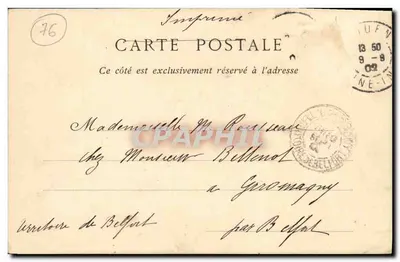 76
Imprimé
CARTE POSTALE
Ce côté est exclusivement réservé à l'adresse
13 50
9 - 9
02
Mademoiselle M. Rousseau
PhilaPF
chez Monsieur Bellenot
a Giromagny
territoire de Belfort
par Belfort